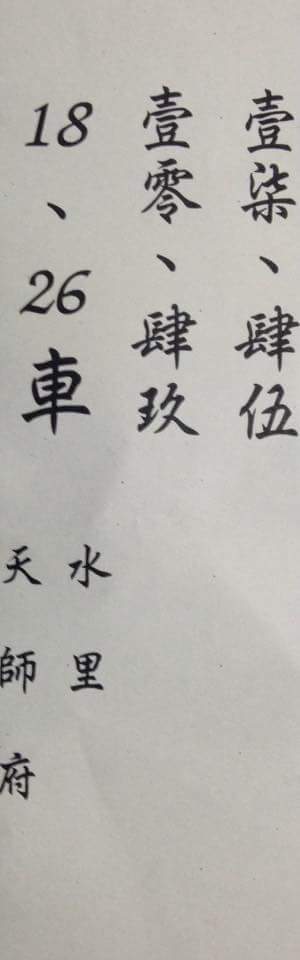 壹柒、肆伍
壹零、肆玖
18、26車
水里
天師府